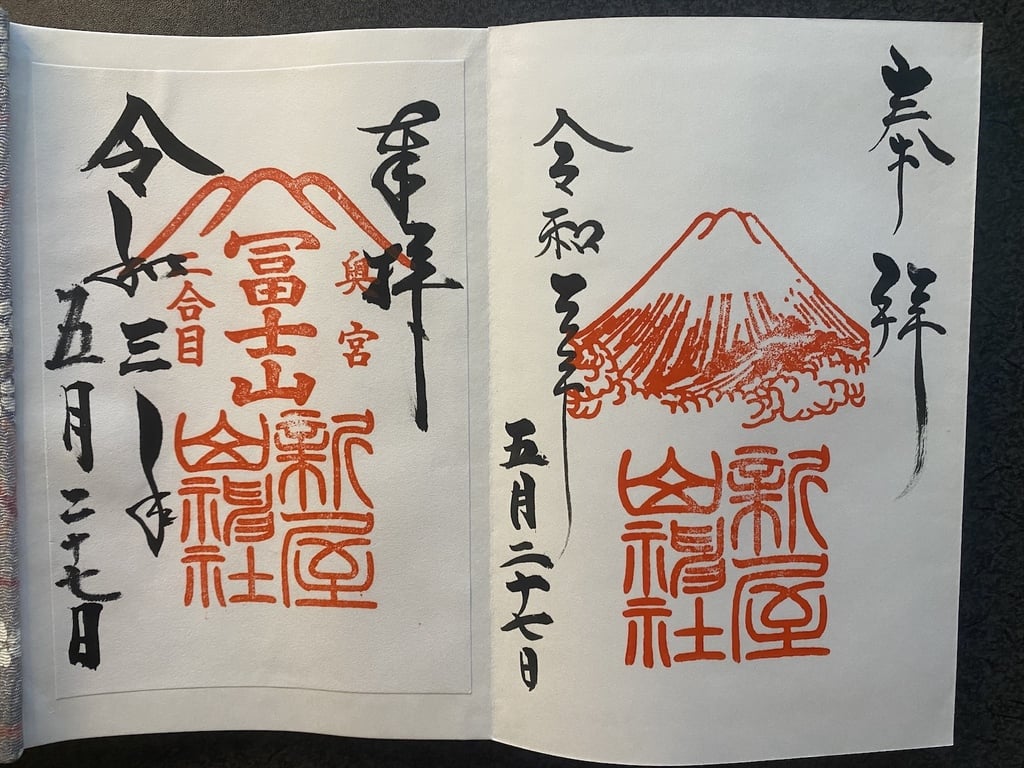 奉拝
新屋
山神社
令和三年
五月二十七日
奉拝
奥宮
冨士山
二合目
新屋
山神社
令和三年
五月二十七日